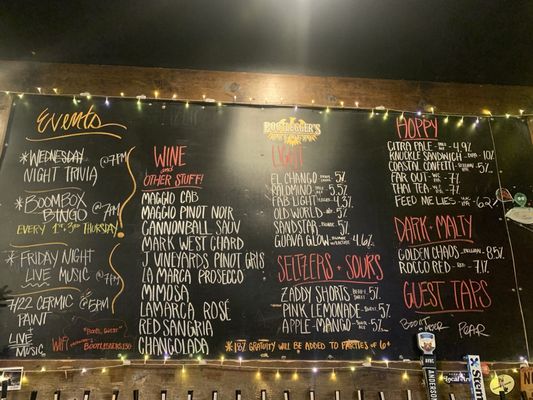 Events
*Wednesday @7PM
Night Trivia
*BoomBox
Bingo @7PM
Every 1st & 3rd Thursday
*Friday Night
Live Music @7PM
7/22 Cermic @5PM
Paint
&
Live
Music
WiFi
Wine
and
Other Stuff!
Maggio Cab
Maggio Pinot Noir
Cannonball Sauv
Mark West Chard
J Vineyards Pinot Gris
La Marca Prosecco
Mimosa
Lamarca Rosé
Red Sangria
Changolada
Bootlegger's
Light
El Chango 5%
Palomino 5.5%
Fab Light 4.5%
Old World 5%
Sandstar 5%
Guava Glow 4.6%
Seltzers + Sours
Zaddy Shorts 5%
Pink Lemonade 5%
Apple-Mango 5%
*18% Gratuity will be added to parties of 6+
Hoppy
Citra Pale 4.9%
Knuckle Sandwich 10%
Coastal Confetti 5%
Far Out 7%
Thai Tea 7%
Feed Me Lies 6.2%
Dark + Malty
Golden Chaos 8.5%
Rocco Red 7.1%
Guest Taps
Pear
Anderson
Local